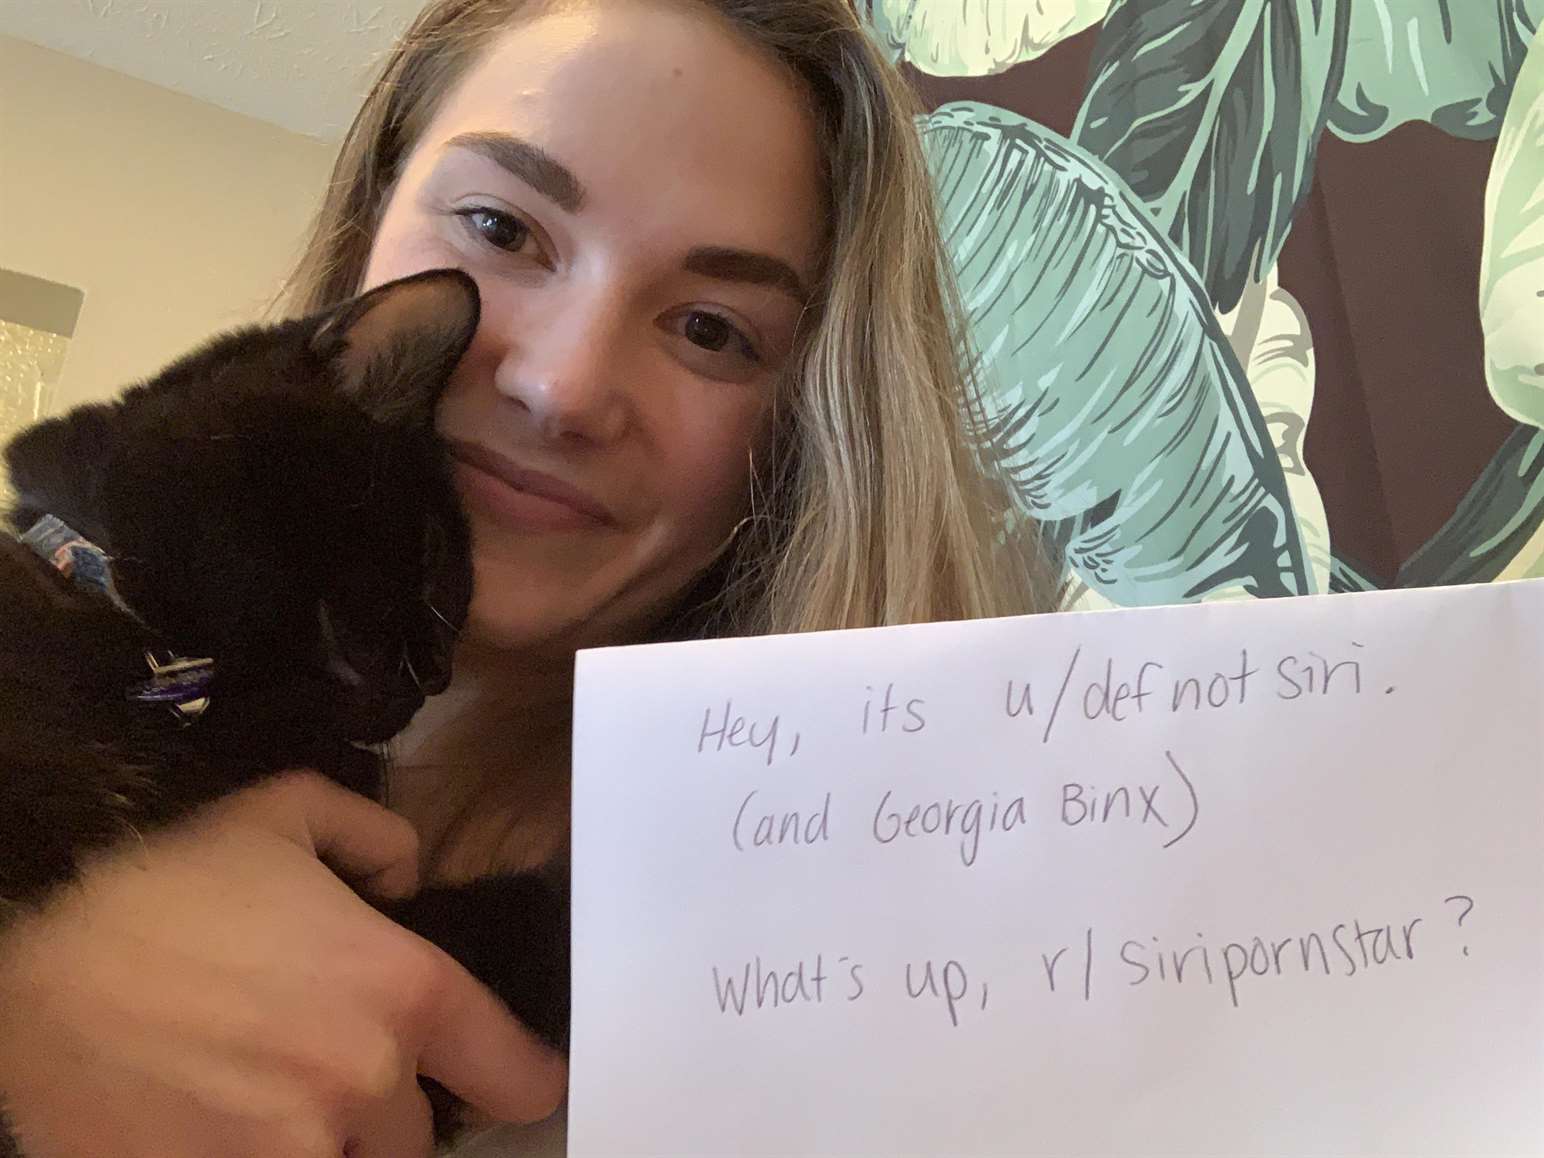 Hey, its u/defnotsiri.
(and Georgia Binx)
What's up, r/siripornstar?